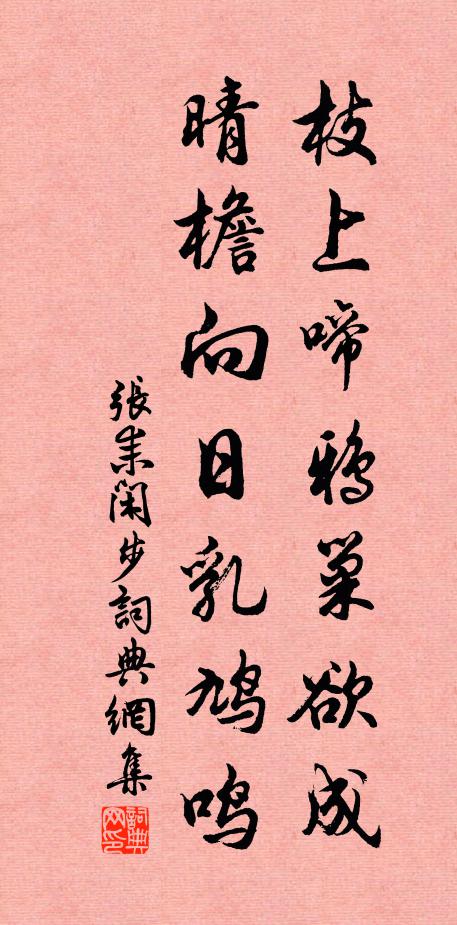 枝上啼鴉巢欲成
晴檐向日乳鳩鳴
張耒閑步詞典網集
詞典网印